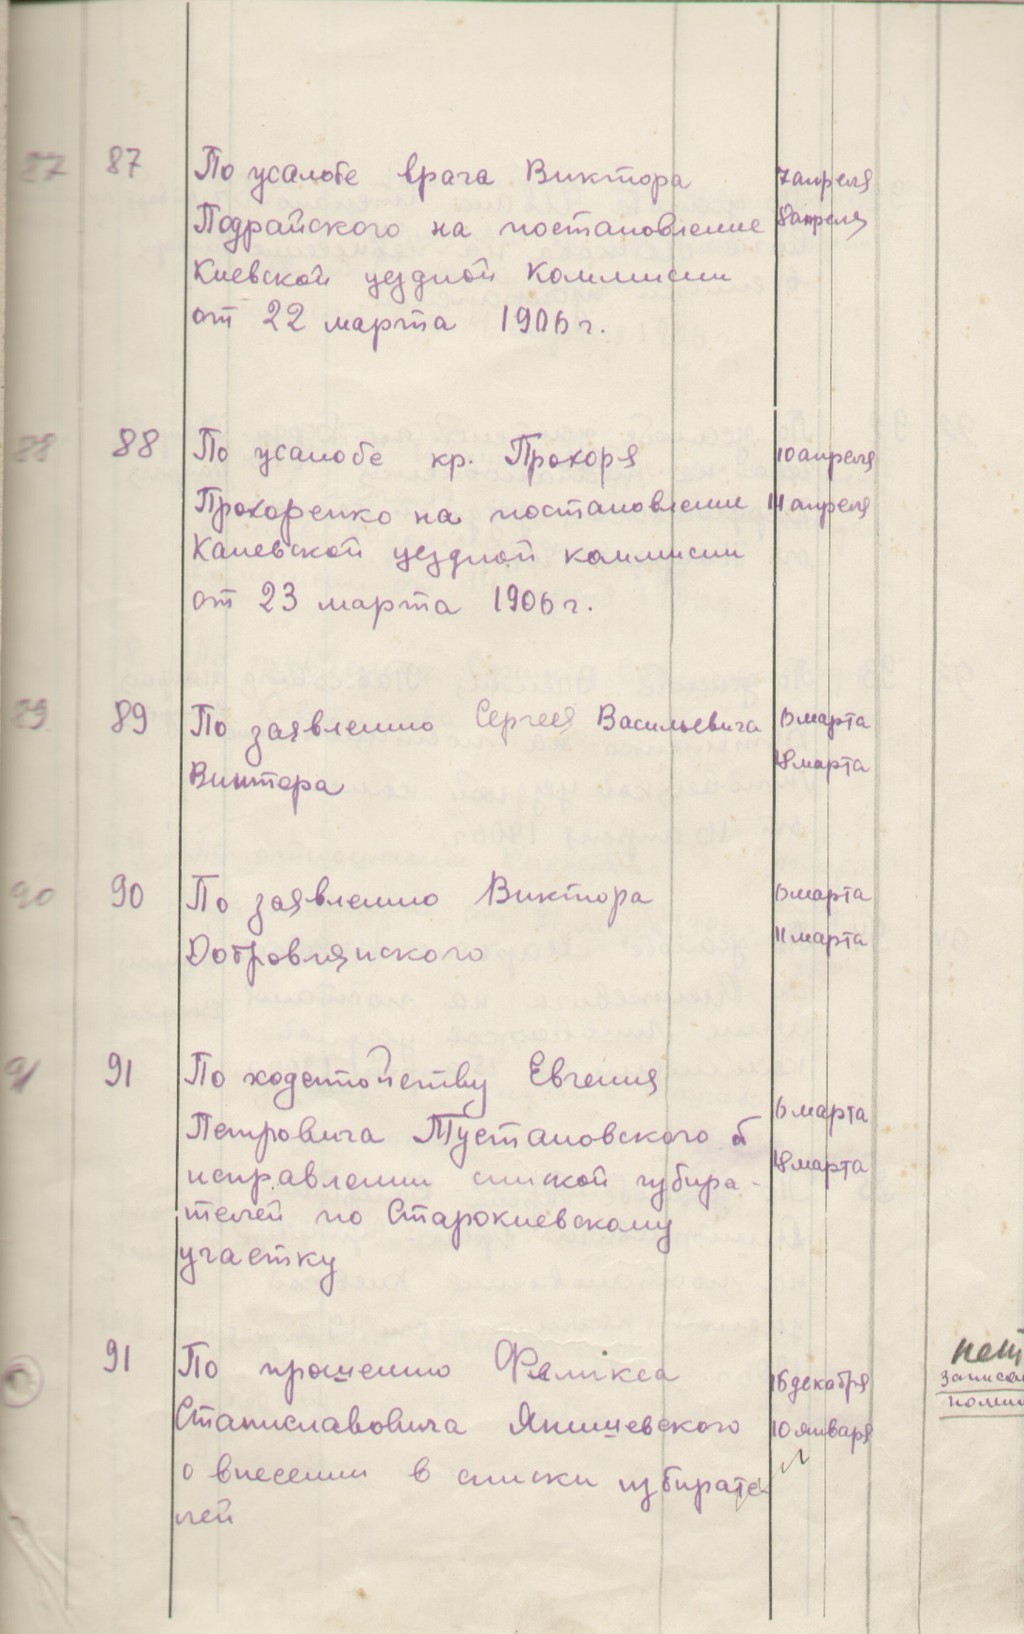 87 87 По жалобе врача Виктора 7 апреля
Подрайского на постановление 8 апреля
Киевской уездной Коммисии
от 22 марта 1906 г.
88 88 По жалобе кр. Прохоря 10 апреля
Прохоренко на постановлении 11 апреля
Каневской уездной коммисии
от 23 марта 1906 г.
89 89 По заявлению Сергея Васильевича 6 марта
Виктора 18 марта
90 90 По заявлению Виктора 6 марта
Добровлянского 11 марта
91 91 По ходатойству Евгения
Петровича Тустановского об 6 марта
исправлении списков избира- 18 марта
телей по Старокиевскому
участку
91 По прошению Фелікса 16 декабря нет
Станиславовича Янишевского 10 января
о внесении в списки избирате
лей